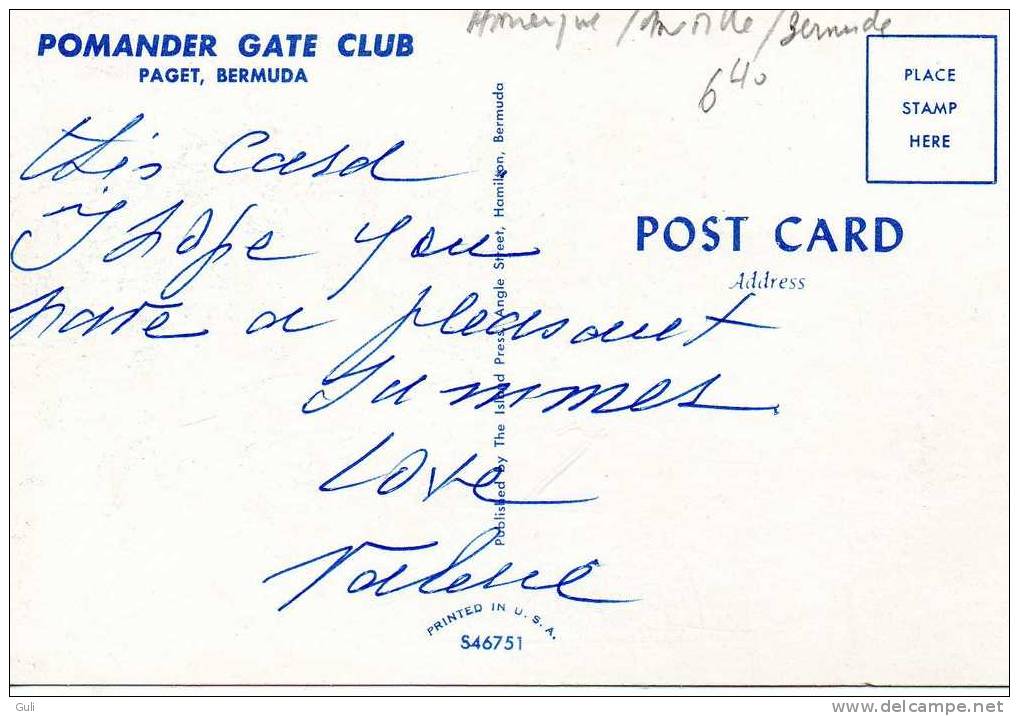 POMANDER GATE CLUB
PAGET, BERMUDA
6 40
PLACE
STAMP
HERE
this card
I hope you
have a pleasant
Summer
Love
POST CARD
Address
Published by The Island Press, Angle Street, Hamilton, Bermuda
PRINTED IN U.S.A.
S46751
Guli
delcampe.net